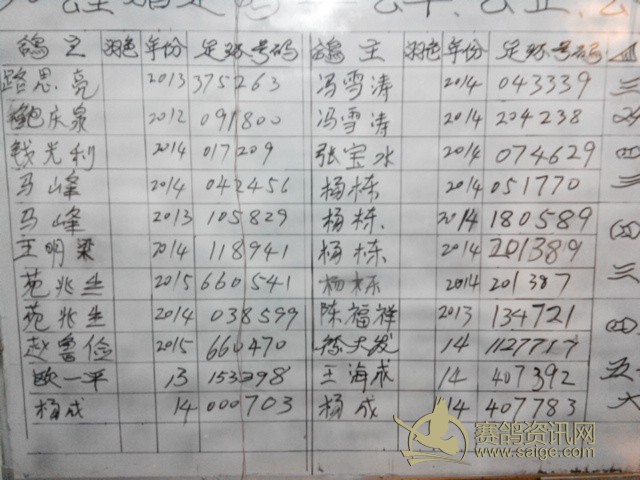 鸽主 羽色 年份 足环号码 鸽主 羽色 年份 足环号码
路思亮 2013 375263 冯雪涛 2014 043339 三
鲍庆泉 2012 091800 冯雪涛 2014 204238
钱光利 2014 017209 张宝水 2014 074629
马峰 2014 042456 杨栋 2014 051770 三
马峰 2013 105829 杨栋 2014 180589
王明梁 2014 118941 杨栋 2014 201389
苑兆生 2015 660541 杨栋 2014 201387 三
苑兆生 2014 038599 陈福祥 2013 134721
赵鲁俭 2015 660470 14
欧一平 13 153298 王海成 14 407392 五
杨成 14 000703 杨成 14 407783 六
赛鸽资讯网
www.saigc.com